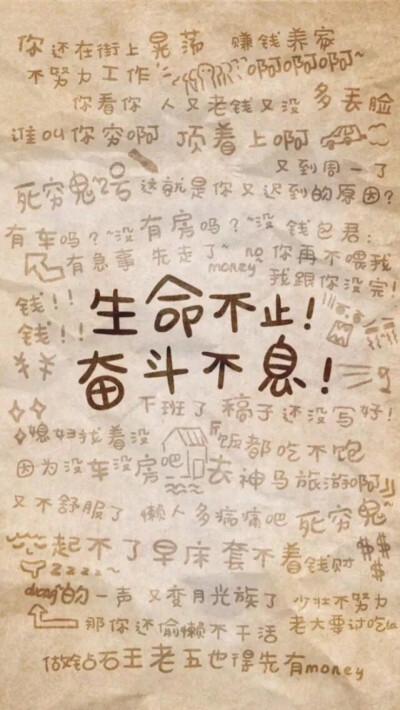 你还在街上晃荡 赚钱养家
不努力工作 啊啊啊啊~
你看你 人又老钱又没 多丢脸
谁叫你穷啊 顶着上啊
又到周一了
死穷鬼2号 这就是你又迟到的原因?
有车吗?~没 有房吗?~没 钱包君:
有急事 先走了~ no money 你再不喂我
我跟你没完!
钱!!
钱!!
生命不止!
奋斗不息!
¥ ¥
下班了 稿子还没写好!
媳妇找着没 饭都吃不饱
因为没车没房吧 去神马旅游啊
又不舒服了 懒人多病痛吧 死穷鬼~
起不了早床套不着钱财 $$ $$
Zzzz~
duang的一声 又变月光族了 少壮不努力
那你还偷懒不干活 老大要讨吃
做钻石王老五也得先有money